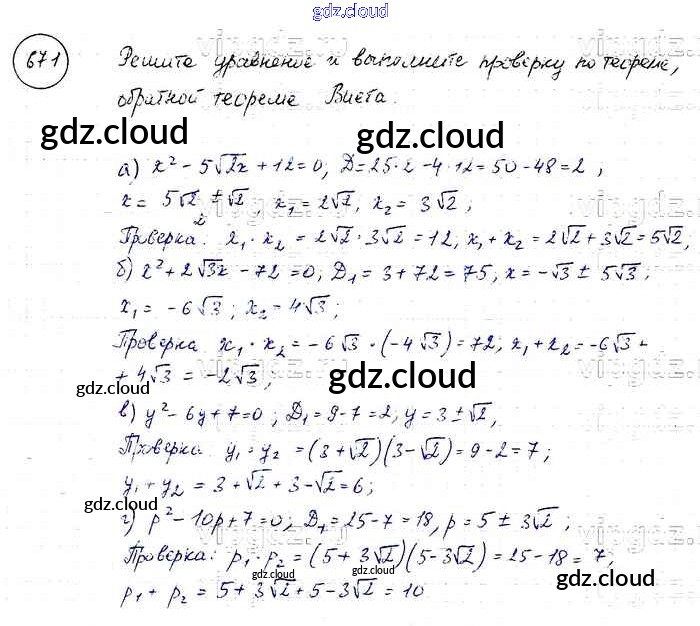 gdz.cloud
671
Решите уравнение и выполните проверку по теореме,
обратной теореме Виета.
gdz.cloud gdz.cloud
а) x² - 5√2x + 12 = 0, D = 25·2 - 4·12 = 50 - 48 = 2,
x = (5√2 ± √2)/2, x₁ = 2√2, x₂ = 3√2;
Проверка: x₁·x₂ = 2√2·3√2 = 12, x₁ + x₂ = 2√2 + 3√2 = 5√2,
б) x² + 2√3x - 72 = 0; D₁ = 3 + 72 = 75, x = -√3 ± 5√3;
x₁ = -6√3; x₂ = 4√3;
Проверка x₁·x₂ = -6√3·(-4√3) = 72; x₁ + x₂ = -6√3 +
+ 4√3 = -2√3;
gdz.cloud gdz.cloud
в) y² - 6y + 7 = 0; D₁ = 9 - 7 = 2, y = 3 ± √2,
Проверка: y₁·y₂ = (3 + √2)(3 - √2) = 9 - 2 = 7;
y₁ + y₂ = 3 + √2 + 3 - √2 = 6;
gdz.cloud gdz.cloud
г) p² - 10p + 7 = 0; D₁ = 25 - 7 = 18, p = 5 ± 3√2;
Проверка: p₁·p₂ = (5 + 3√2)(5 - 3√2) = 25 - 18 = 7;
gdz.cloud gdz.cloud
p₁ + p₂ = 5 + 3√2 + 5 - 3√2 = 10